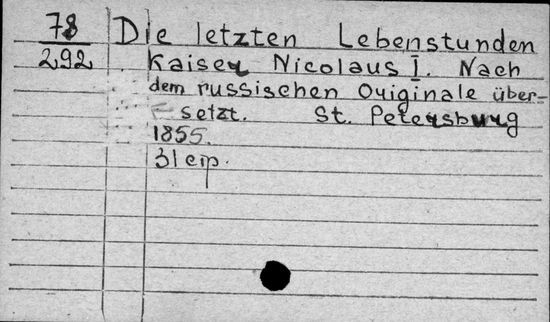 78 Die letzten Lebenstunden
292 Kaiser Nicolaus I. Nach
dem russischen Originale über-
setzt. St. Petersburg
1855.
31 cip.